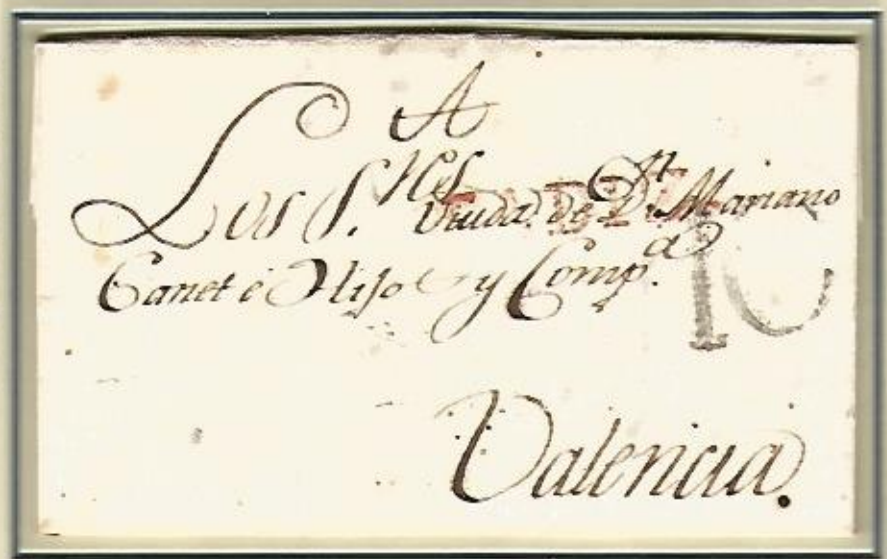 A
Los S.res Viuda de D.n Mariano
Canet é Hijo y Comp.a
10
Valencia.